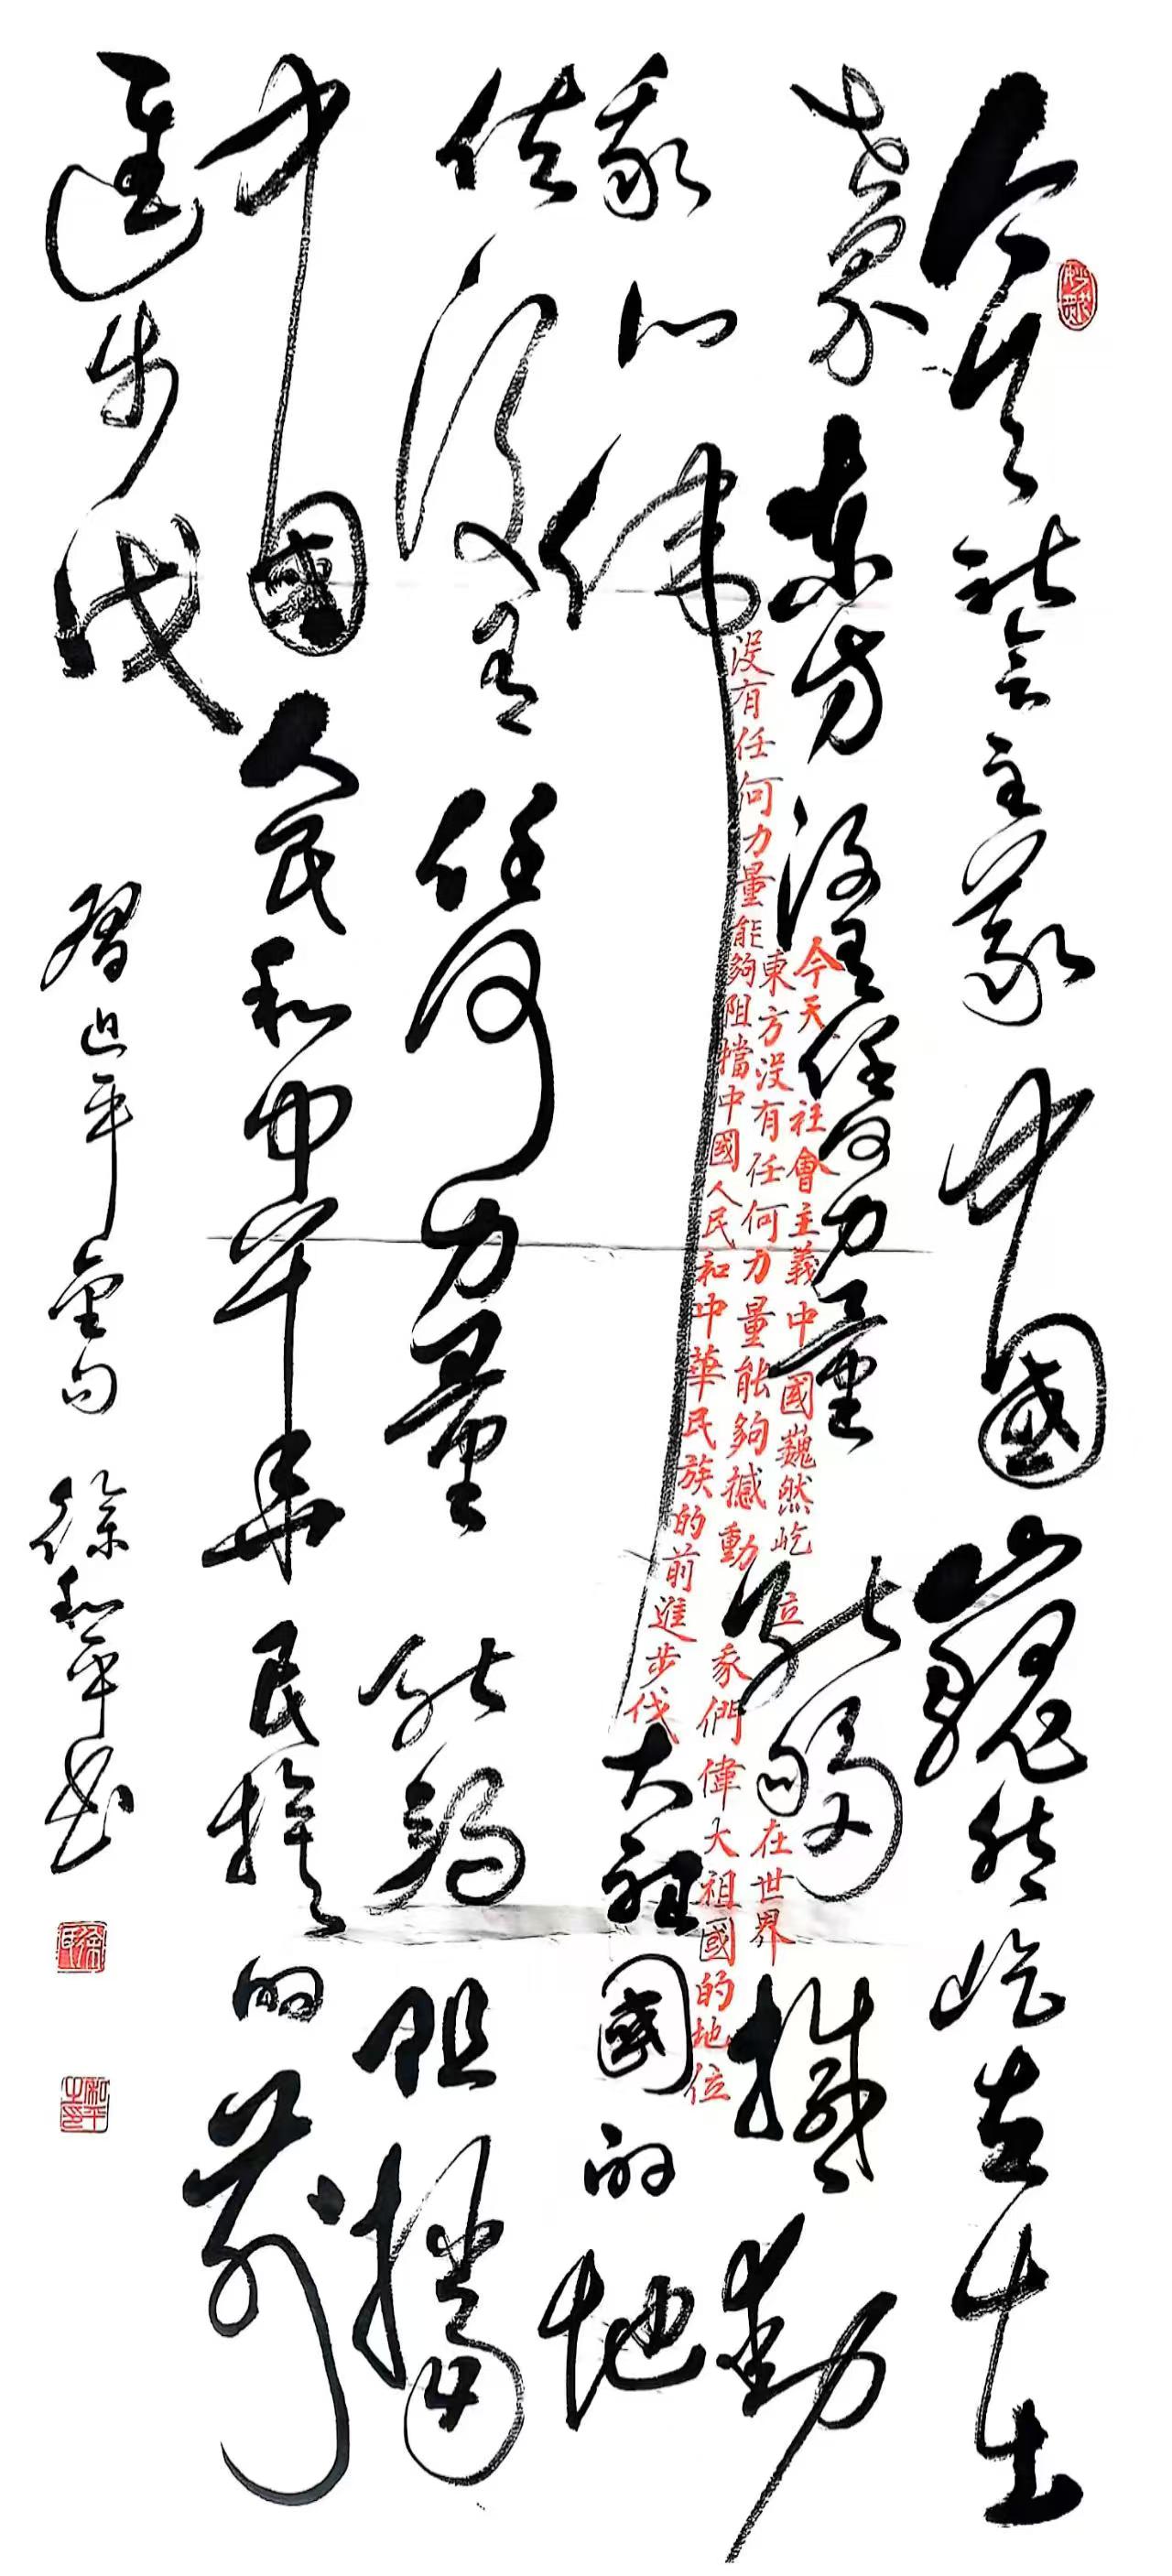 今天社会主義中國巍然屹立在
世界東方没有任何力量能夠撼動
我们偉大祖國的地
位没有任何力量能夠阻擋
中國人民和中華民族的前
進步伐
習近平金句 徐和平书
今天社會主義中國巍然屹立在世界
東方没有任何力量能夠撼動我們偉大祖國的地位
没有任何力量能夠阻擋中國人民和中華民族的前進步伐